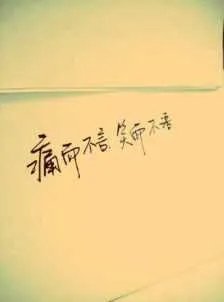 痛而不言.笑而不语